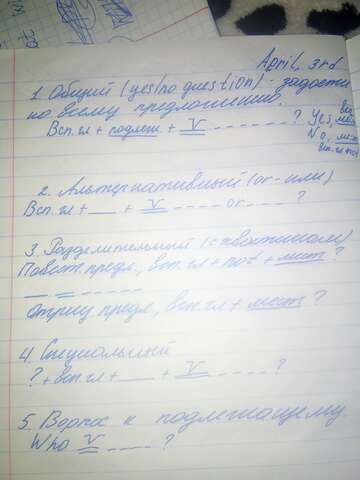 April, 3rd
1. Общий (yes/no question) - задается
ко всему предложению.
Всп. гл + подлеж. + V - - - - - - ? Yes,
No,
2. Альтернативный (or - или)
Всп. гл + __ + V - - - - - or - - - - ?
3. Разделительный (с хвостиком)
Повеств. предл., всп. гл + not + мест ?
Отриц предл., всп. гл + мест ?
4. Специальный
? + всп гл + __ + V - - - - - ?
5. Ворпос к подлежащему.
Who V - - - - ?